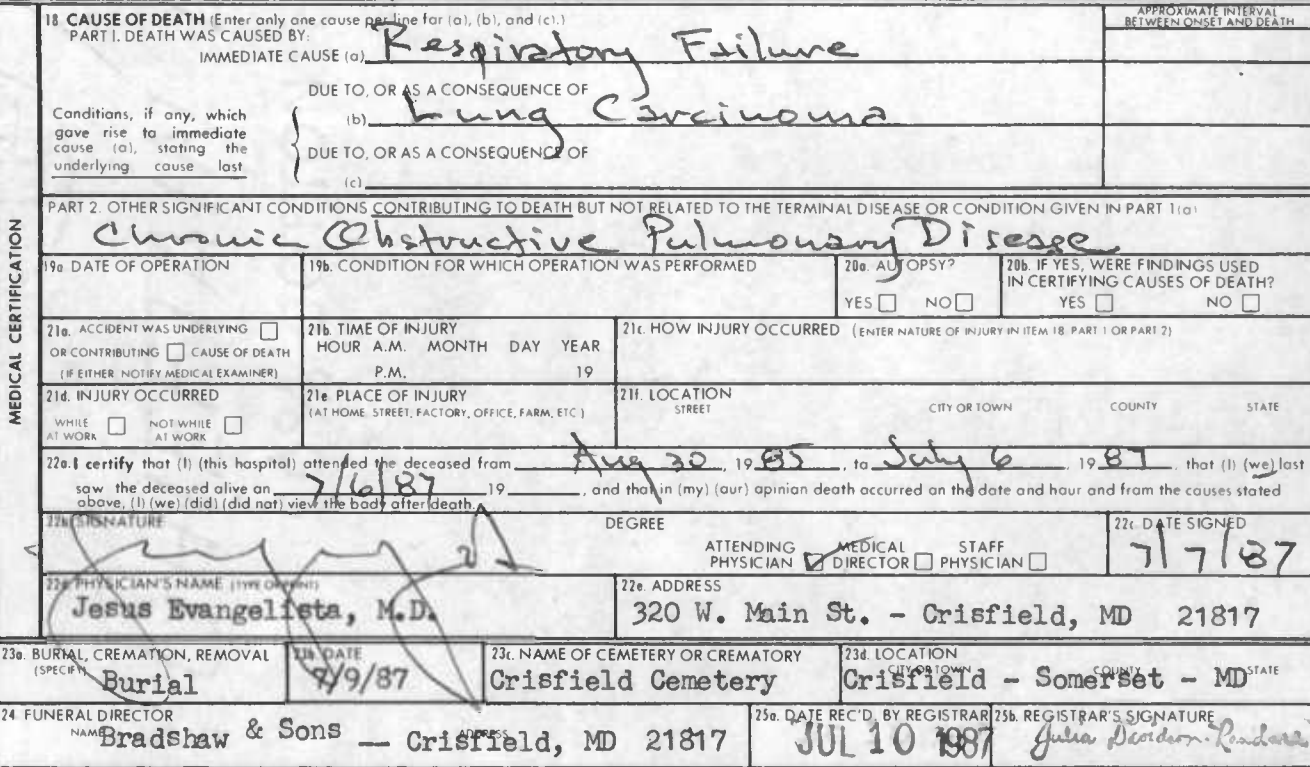 18 CAUSE OF DEATH (Enter only one cause per line for (a), (b), and (c).)
APPROXIMATE INTERVAL
BETWEEN ONSET AND DEATH
PART I. DEATH WAS CAUSED BY:
IMMEDIATE CAUSE (a) Respiratory Failure
DUE TO, OR AS A CONSEQUENCE OF
Conditions, if any, which
gave rise to immediate
cause (a), stating the
underlying cause last
(b) Lung Carcinoma
DUE TO, OR AS A CONSEQUENCE OF
(c)
PART 2. OTHER SIGNIFICANT CONDITIONS CONTRIBUTING TO DEATH BUT NOT RELATED TO THE TERMINAL DISEASE OR CONDITION GIVEN IN PART 1(a)
Chronic Obstructive Pulmonary Disease
MEDICAL CERTIFICATION
19a DATE OF OPERATION
19b. CONDITION FOR WHICH OPERATION WAS PERFORMED
20a. AUTOPSY?
YES NO
20b. IF YES, WERE FINDINGS USED
IN CERTIFYING CAUSES OF DEATH?
YES NO
21a. ACCIDENT WAS UNDERLYING
OR CONTRIBUTING CAUSE OF DEATH
(IF EITHER NOTIFY MEDICAL EXAMINER)
21b. TIME OF INJURY
HOUR A.M. MONTH DAY YEAR
P.M. 19
21c. HOW INJURY OCCURRED (ENTER NATURE OF INJURY IN ITEM 18 PART 1 OR PART 2)
21d. INJURY OCCURRED
WHILE AT WORK NOT WHILE AT WORK
21e PLACE OF INJURY
(AT HOME STREET, FACTORY, OFFICE, FARM, ETC)
21f. LOCATION
STREET CITY OR TOWN COUNTY STATE
22a. I certify that (I) (this hospital) attended the deceased from Aug 30, 19 85, to July 6 19 87, that (I) (we) last
saw the deceased alive on 7/6/87 19 , and that in (my) (our) opinion death occurred on the date and hour and from the causes stated
above, (I) (we) (did) (did not) view the body after death.
22b SIGNATURE
DEGREE
ATTENDING PHYSICIAN MEDICAL DIRECTOR STAFF PHYSICIAN
22c. DATE SIGNED
7/7/87
22d PHYSICIAN'S NAME (TYPE OR PRINT)
Jesus Evangelista, M.D.
22e. ADDRESS
320 W. Main St. - Crisfield, MD 21817
23a. BURIAL, CREMATION, REMOVAL
(SPECIFY) Burial
23b DATE
7/9/87
23c. NAME OF CEMETERY OR CREMATORY
Crisfield Cemetery
23d. LOCATION
CITY OR TOWN COUNTY STATE
Crisfield - Somerset - MD
24 FUNERAL DIRECTOR
NAME Bradshaw & Sons — ADDRESS Crisfield, MD 21817
25a. DATE REC'D. BY REGISTRAR
JUL 10 1987
25b. REGISTRAR'S SIGNATURE
Julia Davidson-Randall